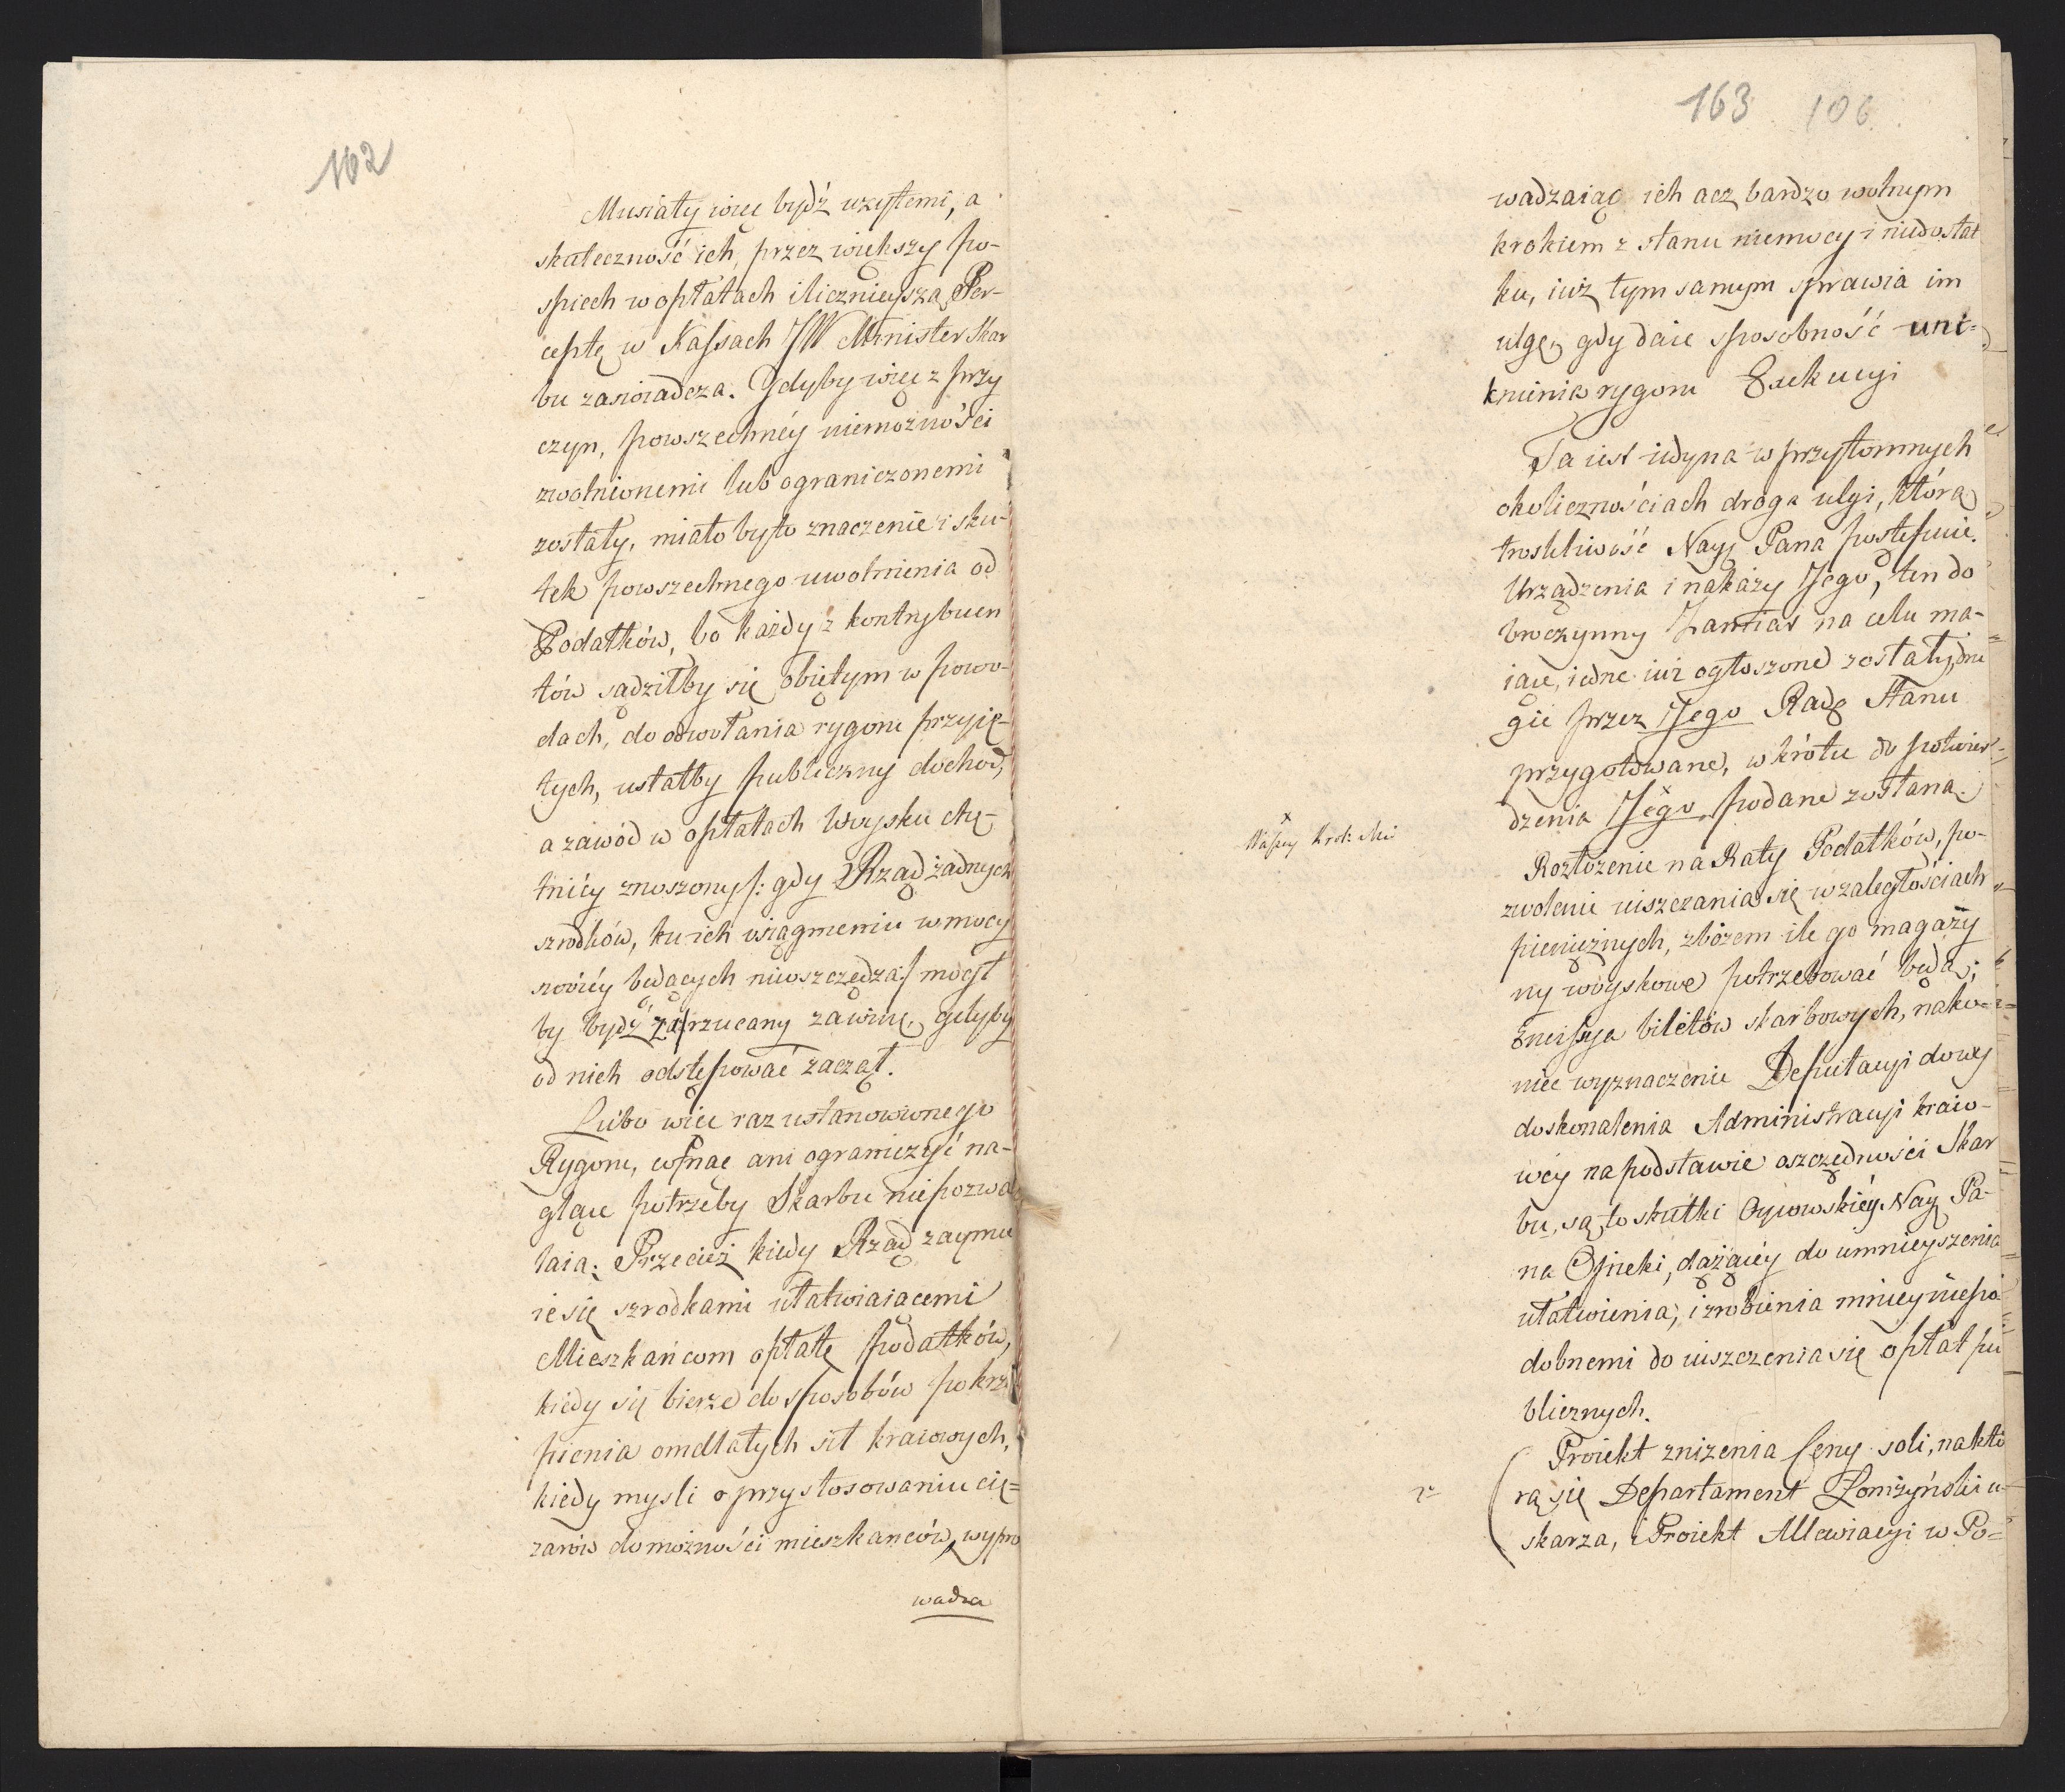 162
Musiały więc bydź użytemi, a
skuteczność ich, przez większy po-
spiech w opłatach i licznieyszą Per-
ceptę w Kassach JW Minister Skar
bu zaswiadcza. Gdyby więc z przy
czyn, powszechnéy niemożności
zwolnionemi lub ograniczonemi
zostały, miało by to znaczenie i sku-
tek powszechnego uwolnienia od
Podatków, bo każdy z kontrybuen
tów sądziłby się obiętym w powo-
dach, do odwołania rygoru przyię-
tych, ustałby publiczny dochod,
a zawód w opłatach Woysku chę-
tniéy znoszony /: gdy Rząd żadnych
szrodków, ku ich osiągnieniu w mocy
swoiéy będących nieoszczędza :/ mógł
by bydź zarzucany zawinę, gdyby
od nich odstępować zaczął.
Lubo więc raz ustanowionego
Rygoru, cofnąc ani ograniczyć na-
glące potrzeby Skarbu niepozwa
laią; Przecież kiedy Rząd zaymu
ie się szrodkami ułatwiaiącemi
Mieszkańcom opłatę podatków,
kiedy się bierze do sposobów pokrze
pienia omdlałych sił kraiowych,
kiedy mysli o przystosowaniu cię=
żarów do możności mieszkańców, wypro
wadza
163 106
wadzaiąc ich acz bardzo wolnym
krokiem z stanu niemocy i niedostat
ku, iuż tym samym sprawia im
ulgę, gdy daie sposobność uni-
knienia rygoru Exekucyi
Ta iest iedyna w przytomnych
okolicznościach droga ulgi, którą
troskliwość Nayj Pana postępuie.
Urządzenia i nakazy Jego, ten do
broczynny Zamiar na celu ma-
iące, iedne iuż ogłoszone zostały, dru
gie przez Jego Radę Stanu
przygotowane, wkrótce do potwier-
dzenia Jego podane zostaną.
x
Waszey Krol: Mci
Rozłożenie na Raty Podatków, po-
zwolenie uiszczania się w zaległościach
pieniężnych, zbożem ile go magazy
ny woyskowe potrzebować będą;
Emissya biletów skarbowych, nako-
niec wyznaczenie Deputacyi do wy
doskonalenia Administracyi kraio-
wéy na podstawie oszczędności Skar
bu, są to skutki Oycowskiéy Nayj Pa-
na Opieki, dążącéy do umnieyszenia
ułatwienia, i zrobienia mniey niepo
dobnemi do uiszczenia się opłat pu
blicznych.
Proiekt zniżenia Ceny soli, na któ
rą się Departament Łomżyński u-
skarza, i Proiekt Allewiacyi w Po=